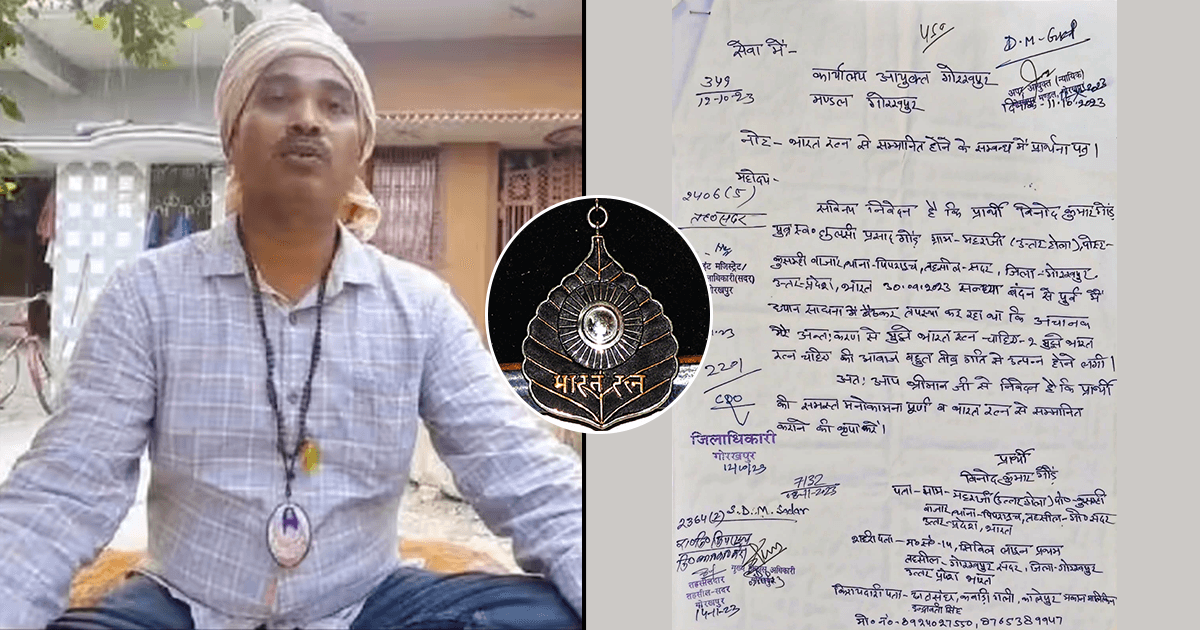 सेवा में-
D.M-Gkp
349
12-10-23
कार्यालय आयुक्त गोरखपुर
मण्डल गोरखपुर
अपर आयुक्त (न्यायिक)
दिनांक-11.10.2023
नोट- भारत रत्न से सम्मानित होने के सम्बन्ध में प्रार्थना पत्र।
महोदय-
2406(5)
तह०सदर
सविनय निवेदन है कि प्रार्थी विनोद कुमार गौंड़
पुत्र स्व० तुलसी प्रसाद गौंड़ ग्राम-महराजी (उत्तर टोला), पोस्ट-
कुसम्ही बाजार, थाना-पिपराइच, तहसील-सदर, जिला-गोरखपुर
उत्तर-प्रदेश, भारत 30.09.2023 सन्ध्या बंदन से पूर्व में
ध्यान साधना में बैठकर तपस्या कर रहा था कि अचानक
मेरे अन्तःकरण से मुझे भारत रत्न चाहिए-2 मुझे भारत
रत्न चाहिए की आवाज बहुत तीव्र गति से उत्पन्न होने लगी।
अतः आप श्रीमान जी से निवेदन है कि प्रार्थी
की समस्त मनोकामना पूर्ण व भारत रत्न से सम्मानित
कराने की कृपा करें।
मजिस्ट्रेट/
(सदर)
गोरखपुर
2201
CDO
जिलाधिकारी
गोरखपुर
भारत रत्न
प्रार्थी
विनोद कुमार गौंड़
7132
पता-ग्राम-महराजी (उत्तर टोला) पो०-कुसम्ही
बाजार, थाना-पिपराइच, तहसील-गो० सदर
उत्तर-प्रदेश, भारत
2364(2) S.D.M. Sadar
अधिकारी
गोरखपुर
तहसीलदार
तहसील-सदर
गोरखपुर
14-11-23
पता- म०सं०-14, सिविल लाइन प्रथम
तहसील-गोरखपुर सदर, जिला-गोरखपुर
उत्तर प्रदेश भारत
किरायेदारी पता- घासघंघ, कवाड़ी गली,
इन्द्रावती सिंह
मो० नं०-8924027550, 8765389947